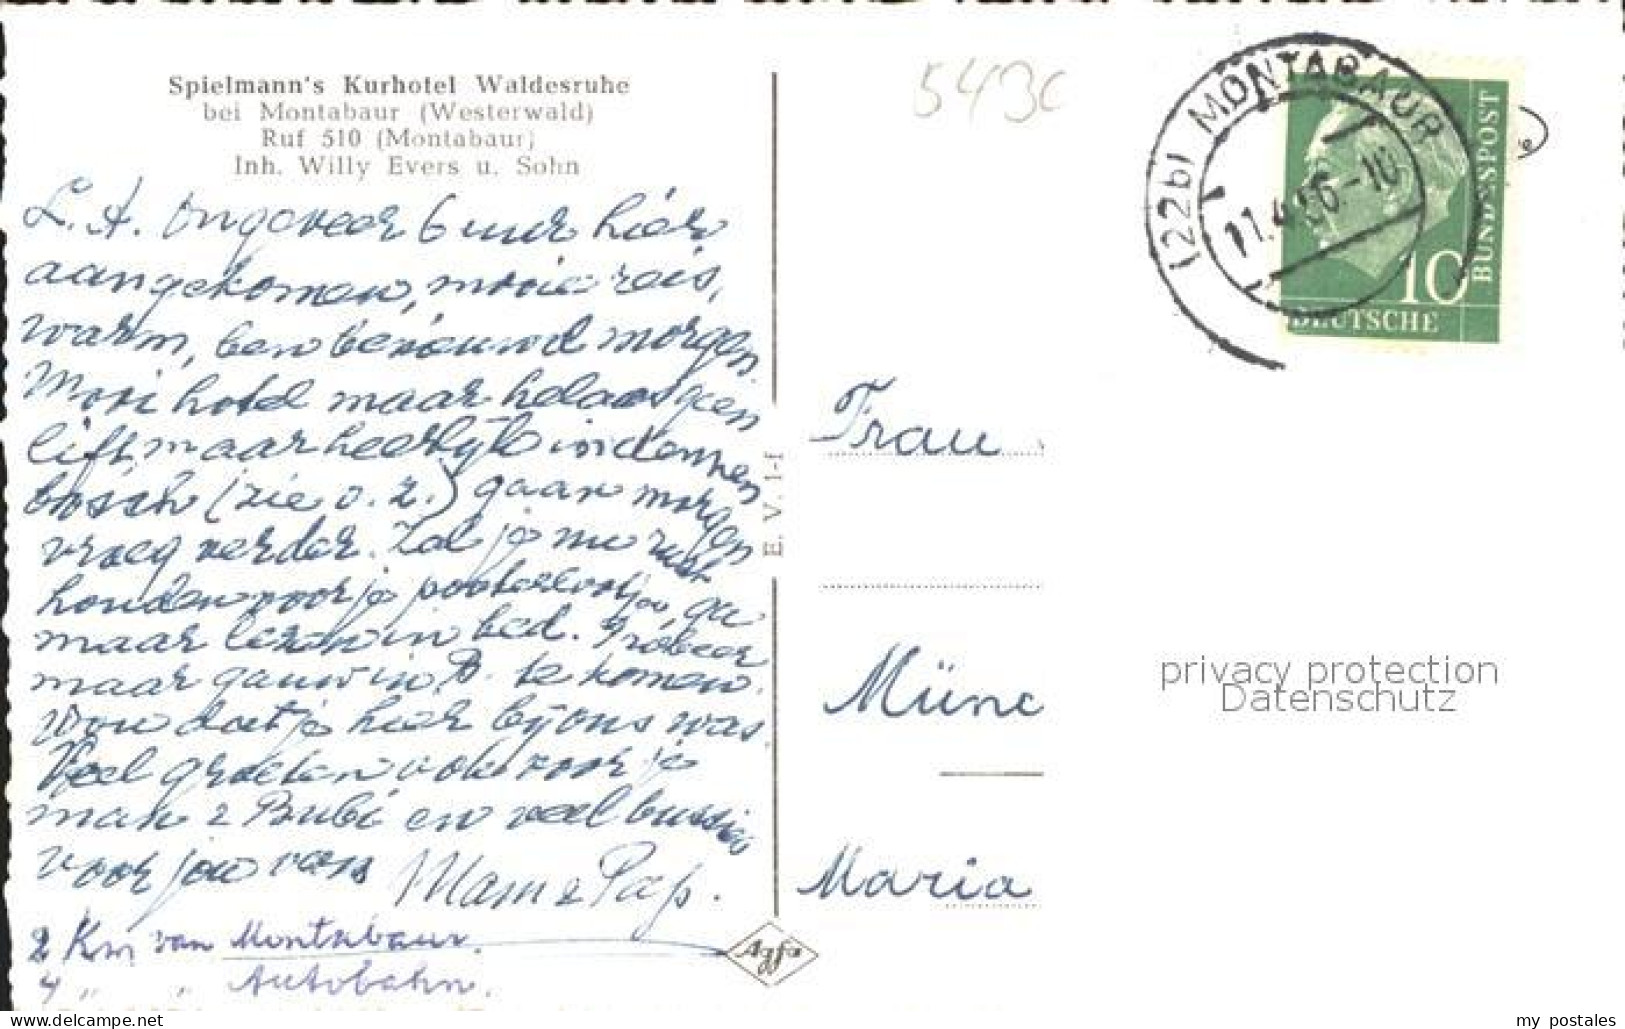 Spielmann's Kurhotel Waldesruhe
bei Montabaur (Westerwald)
Ruf 510 (Montabaur)
Inh. Willy Evers u. Sohn
L. A. Ongeveer 6 uur hier
aangekomen, mooie reis,
warm, ben benieuwd morgen
Mooi hotel maar helaas geen
lift, maar heerlijk in dennen
bosch (zie o. z.) gaan morgen
vroeg verder. Zal je nu rust
houden voor je pootje, ga
maar lezen in bed. Probeer
maar gauw in B. te komen.
Wou dat je hier bij ons was.
Veel groeten ook voor je
man & Bubi en veel bussies
voor jou van
Mam & Pap.
2 Km van Montabaur.
4 " " Autobahn.
E. V. I-I
Agfa
543c
(22b) MONTABAUR
11.4.56.-10
DEUTSCHE
BUNDESPOST
10
Frau
Münc
Maria
privacy protection
Datenschutz
www.delcampe.net
my_postales